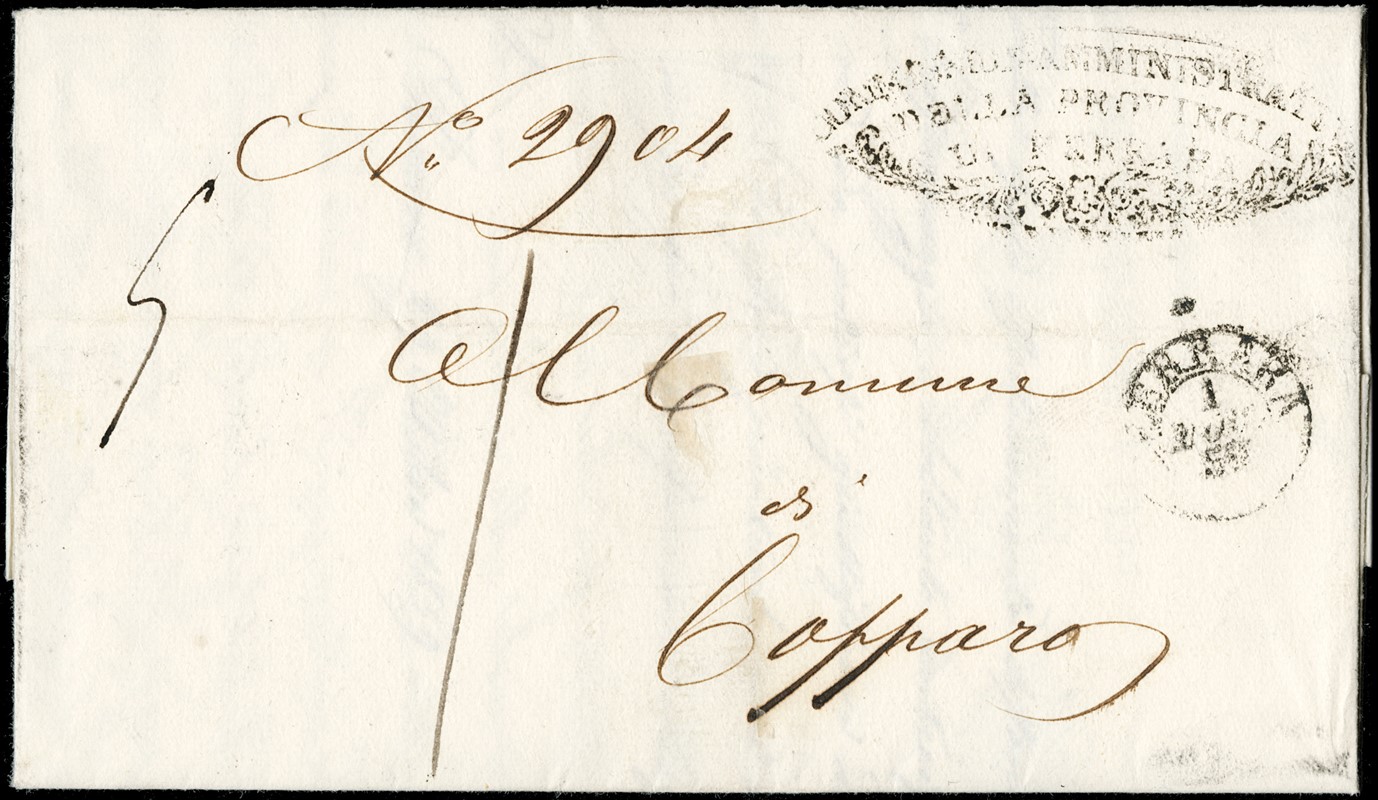 N.o 2904
AMMINISTRATIVA
DELLA PROVINCIA
DI FERRARA
Al Comune
di
Copparo
FERRARA
1